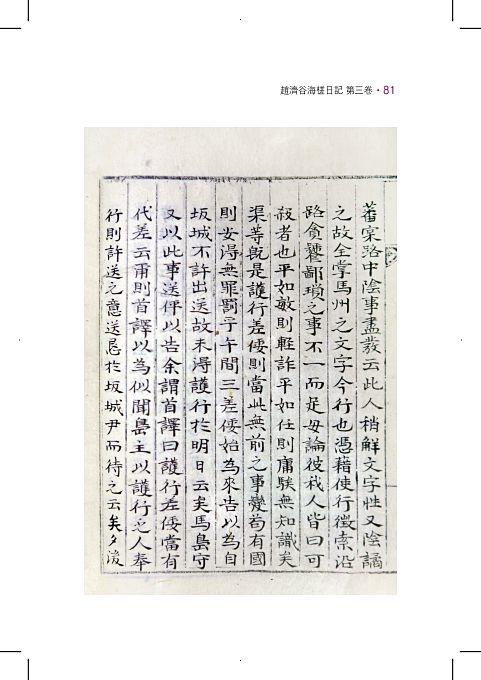 趙濟谷海槎日記 第三卷 • 81
蕃寀路中陰事盡發云此人稍解文字性又陰譎
之故全掌馬州之文字今行也憑藉使行徵索沿
路貪饕鄙瑣之事不一而足毋論彼我人皆曰可
殺者也平如敏則輕詐平如任則庸騃無知識矣
渠等旣是護行差倭則當此無前之事變苟有國
則安得無罪罰乎午間三差倭始爲來告以爲自
坂城不許出送故未得護行於明日云矣馬島守
又以此事送伻以告余謂首譯曰護行差倭當有
代差云甫則首譯以為似聞島主以護行之人奉
行則許送之意送急於坂城尹而待之云矣夕後